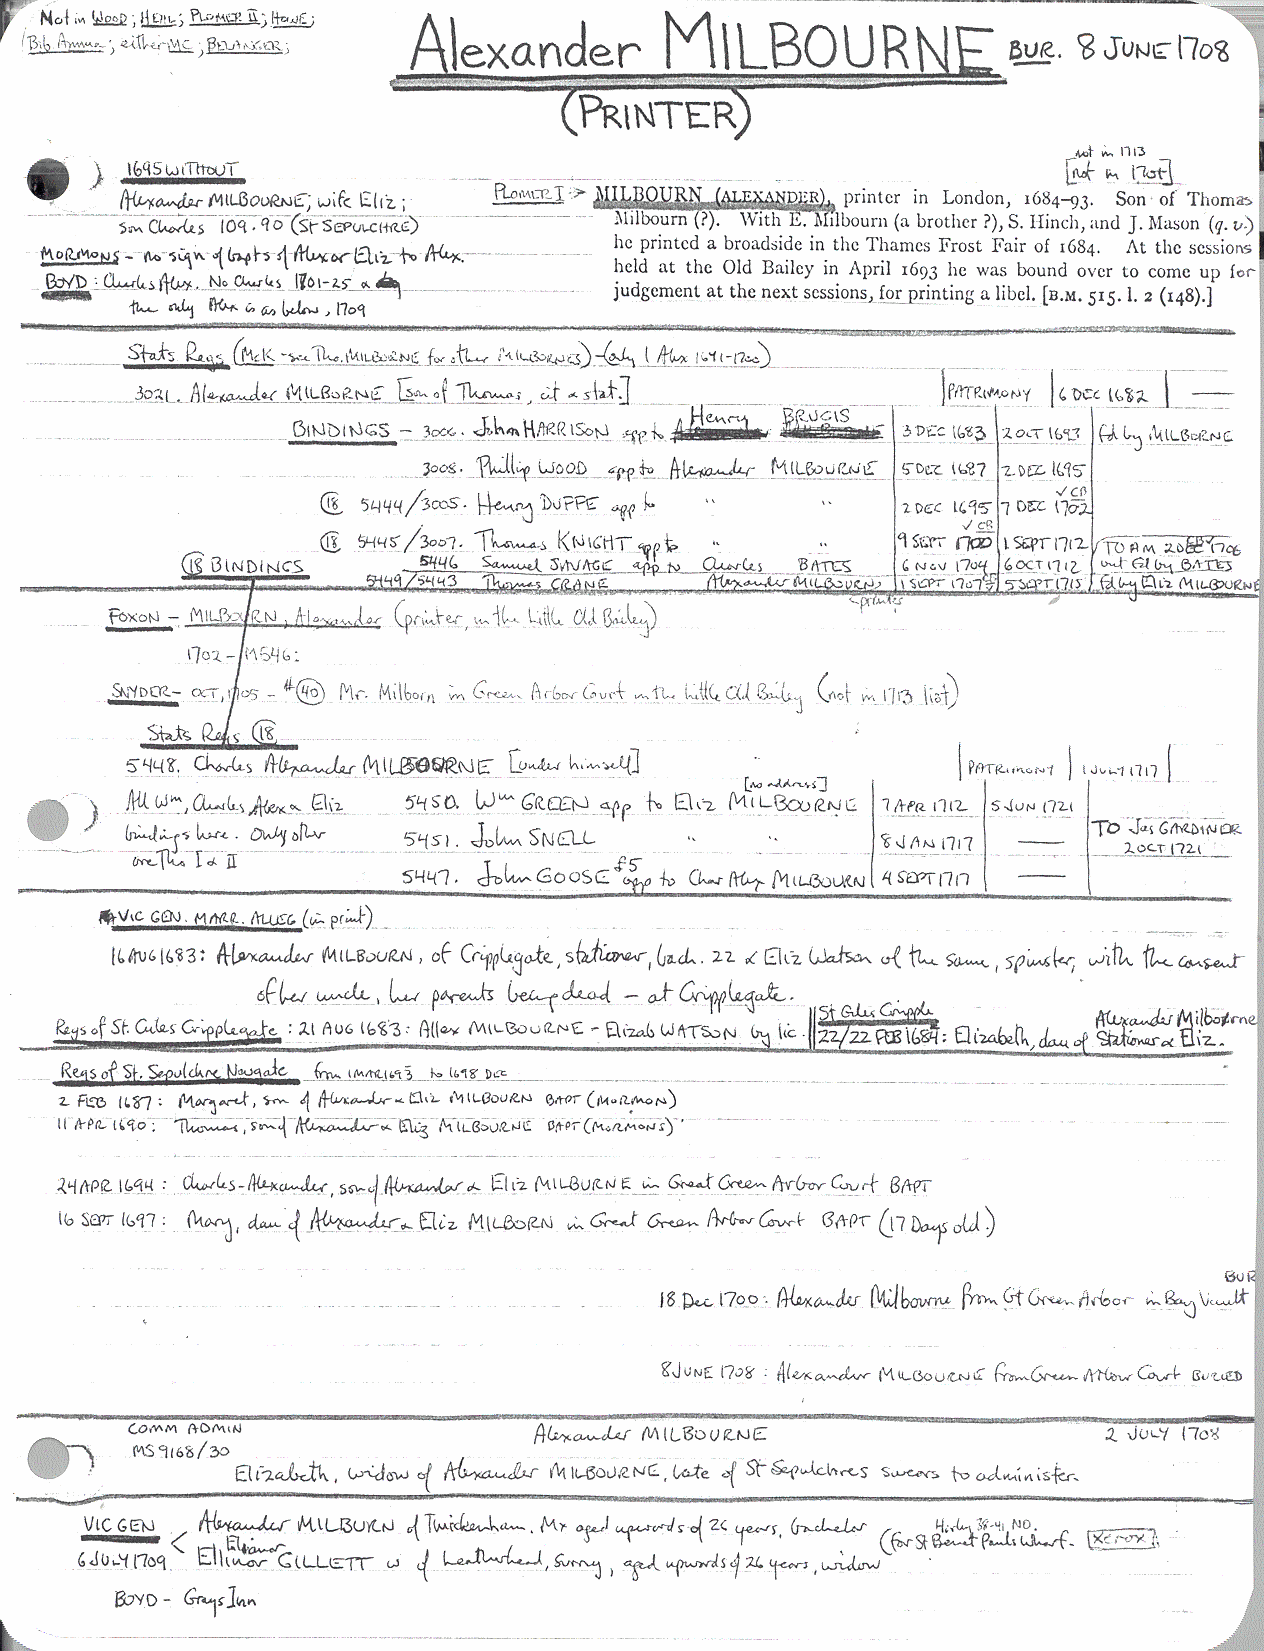 Not in WOOD; HEAL; PLOMER II; HOWE;
Bib Annua; either MC; BELANGER;
Alexander MILBOURNE BUR. 8 JUNE 1708
(PRINTER)
not in 1713
[not in 1705]
1695 WITHOUT
Alexander MILBOURNE; wife Eliz;
son Charles 109.90 (St SEPULCHRE)
MORMONS - no sign of bapts of Alex or Eliz to Alex.
BOYD: Charles Alex. No Charles 1701-25 &
the only Alex is as below, 1709
PLOMER I :-> MILBOURN (ALEXANDER), printer in London, 1684-93. Son of Thomas
Milbourn (?). With E. Milbourn (a brother ?), S. Hinch, and J. Mason (q. v.)
he printed a broadside in the Thames Frost Fair of 1684. At the sessions
held at the Old Bailey in April 1693 he was bound over to come up for
judgement at the next sessions, for printing a libel. [B.M. 515. l. 2 (148).]
Stats Regs (McK - see Tho. MILBOURNE for other MILBOURNES) - (only 1 Alex 1641-1700)
3021. Alexander MILBOURNE [son of Thomas, cit & stat.] PATRIMONY 6 DEC 1682 —
BINDINGS - 3006. John HARRISON app to Henry BRUGIS 3 DEC 1683 2 OCT 1693 fd by MILBORNE
3008. Phillip WOOD app to Alexander MILBOURNE 5 DEC 1687 2 DEC 1695
(18) 5444/3005. Henry DUFFE app to " " 2 DEC 1695 7 DEC 1702 ✓CB
(18) 5445/3007. Thomas KNIGHT app to " " 9 SEPT 1700 ✓CB 1 SEPT 1712 TO AM 2 DEC 1706
(18) BINDINGS 5446 Samuel SAVAGE app to Charles BATES 6 NOV 1704 6 OCT 1712 not fd by BATES
5449/5443 Thomas CRANE Alexander MILBOURN, printer 1 SEPT 1707 5 SEPT 1715 fd by Eliz MILBOURNE
FOXON - MILBOURN, Alexander (printer, in the Little Old Bailey)
1702 - M546:
SNYDER - OCT, 1705 - #(40) Mr. Milborn in Green Arbor Court in the Little Old Bailey (not in 1713 list)
Stats Regs (18)
5448. Charles Alexander MILBOURNE [under himself] PATRIMONY 1 JULY 1717
[no address]
All Wm, Charles, Alex & Eliz
bindings here. Only other
are Ths I & II
5450. Wm GREEN app to Eliz MILBOURNE 7 APR 1712 5 JUN 1721
5451. John SNELL " " 8 JAN 1717 — TO Jas GARDINER 2 OCT 1721
5447. John GOOSE £5 app to Char Alex MILBOURN 4 SEPT 1717 —
VIC GEN. MARR. ALLEG (in print)
16 AUG 1683: Alexander MILBOURN, of Cripplegate, stationer, bach. 22 & Eliz Watson of the same, spinster, with the consent
of her uncle, her parents being dead - at Cripplegate.
Regs of St. Giles Cripplegate: 21 AUG 1683: Allex MILBOURNE - Elizab WATSON by lic.
St Giles Cripple
22/22 FEB 1684: Elizabeth, dau of Alexander Milbourne Stationer & Eliz.
Regs of St. Sepulchre Newgate from 1 MAR 1693 to 1698 DEC
2 FEB 1687: Margaret, son of Alexander & Eliz MILBOURN BAPT (MORMON)
11 APR 1690: Thomas, son of Alexander & Eliz MILBOURNE BAPT (MORMONS)
24 APR 1694: Charles-Alexander, son of Alexander & Eliz MILBOURNE in Great Green Arbor Court BAPT
16 SEPT 1697: Mary, dau of Alexander & Eliz MILBORN in Great Green Arbor Court BAPT (17 Days old.)
BUR
18 Dec 1700: Alexander Milbourne from Gt Green Arbor in Bay Vault
8 JUNE 1708: Alexander MILBOURNE from Green Arbour Court BURIED
COMM ADMIN
MS 9168/30
Alexander MILBOURNE 2 JULY 1708
Elizabeth, widow of Alexander MILBOURNE, late of St Sepulchres swears to administer.
VIC GEN
6 JULY 1709
Alexander MILBURN of Twickenham. Mx aged upwards of 26 years, bachelor
Eleanor
Ellinor GILLETT w of Leatherhead, Surrey, aged upwards of 26 years, widow
(for St Benet Pauls Wharf. Harley 38-41, NO. [XEROX].
BOYD - Grays Inn